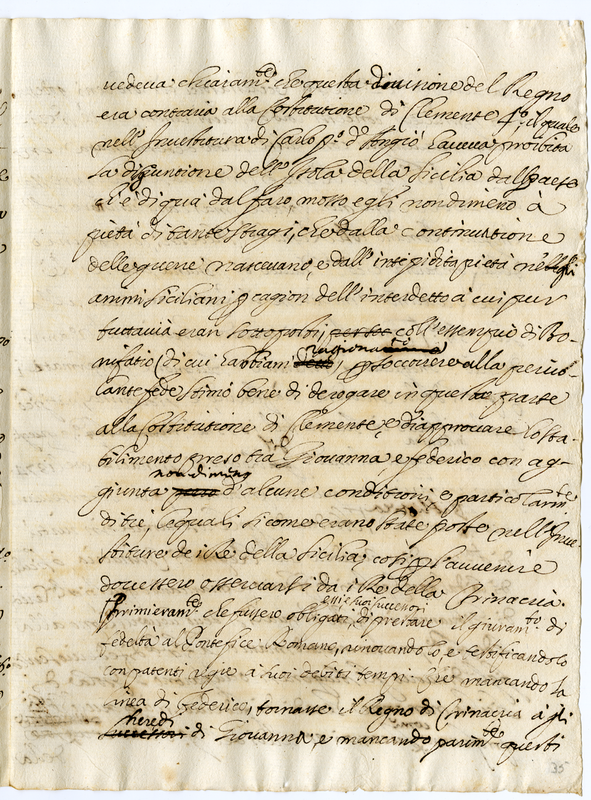 vedeva chiaram.te che questa divisione del Regno
era contraria alla Costitutione di Clemente 4.o, il quale
nell'Investitura di Carlo p.o d'Angiò haveva proibita
la disgiuntione dell'Isola della Sicilia dal Paese
ch'è di qua dal faro, mosso egli nondimeno a
pietà di tante stragi, che dalla continuatione
delle guerre nascevano, e dall'intepidita pietà negli
animi siciliani p cagion dell'interdetto à cui pur
tuttavia eran sottoposti, coll'essempio di Bo-
nifatio (di cui habbiam ragionato), p soccorrere alla perico-
lante fede stimò bene di derogare in questa parte
alla Costitutione di Clemente, e d'approvare lo sta-
bilimento preso tra Giovanna, e federico con ag-
giunta nondimeno d'alcune conditioni, e particolarm.te
di tre, le quali sicome erano state poste nell'Inve-
stiture de i Re della Sicilia; così p l'avvenire
dovessero osservarsi da i Re della Trinacria.
Primieram.te che fussero obligati essi e suoi successori di prestare il giuram.to di
fedeltà al Pontefice Romano, rinovandolo, e testificandolo
con patenti regie a suoi debiti tempi. Che mancando la
linea di federico, tornasse il Regno di Trinacria a gli
heredi di Giovanna, e mancando parim.te questi
35